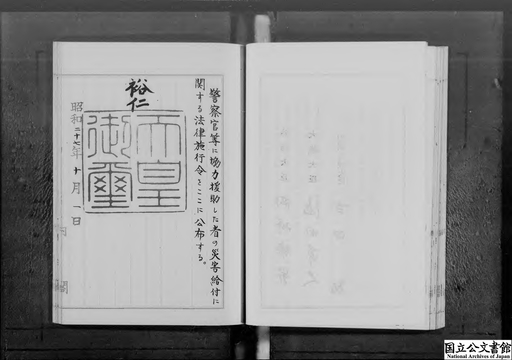 警察官等に協力援助した者の災害給付に
関する法律施行令をここに公布する。
裕仁
天皇
御璽
昭和二十七年十月一日
国立公文書館
National Archives of Japan